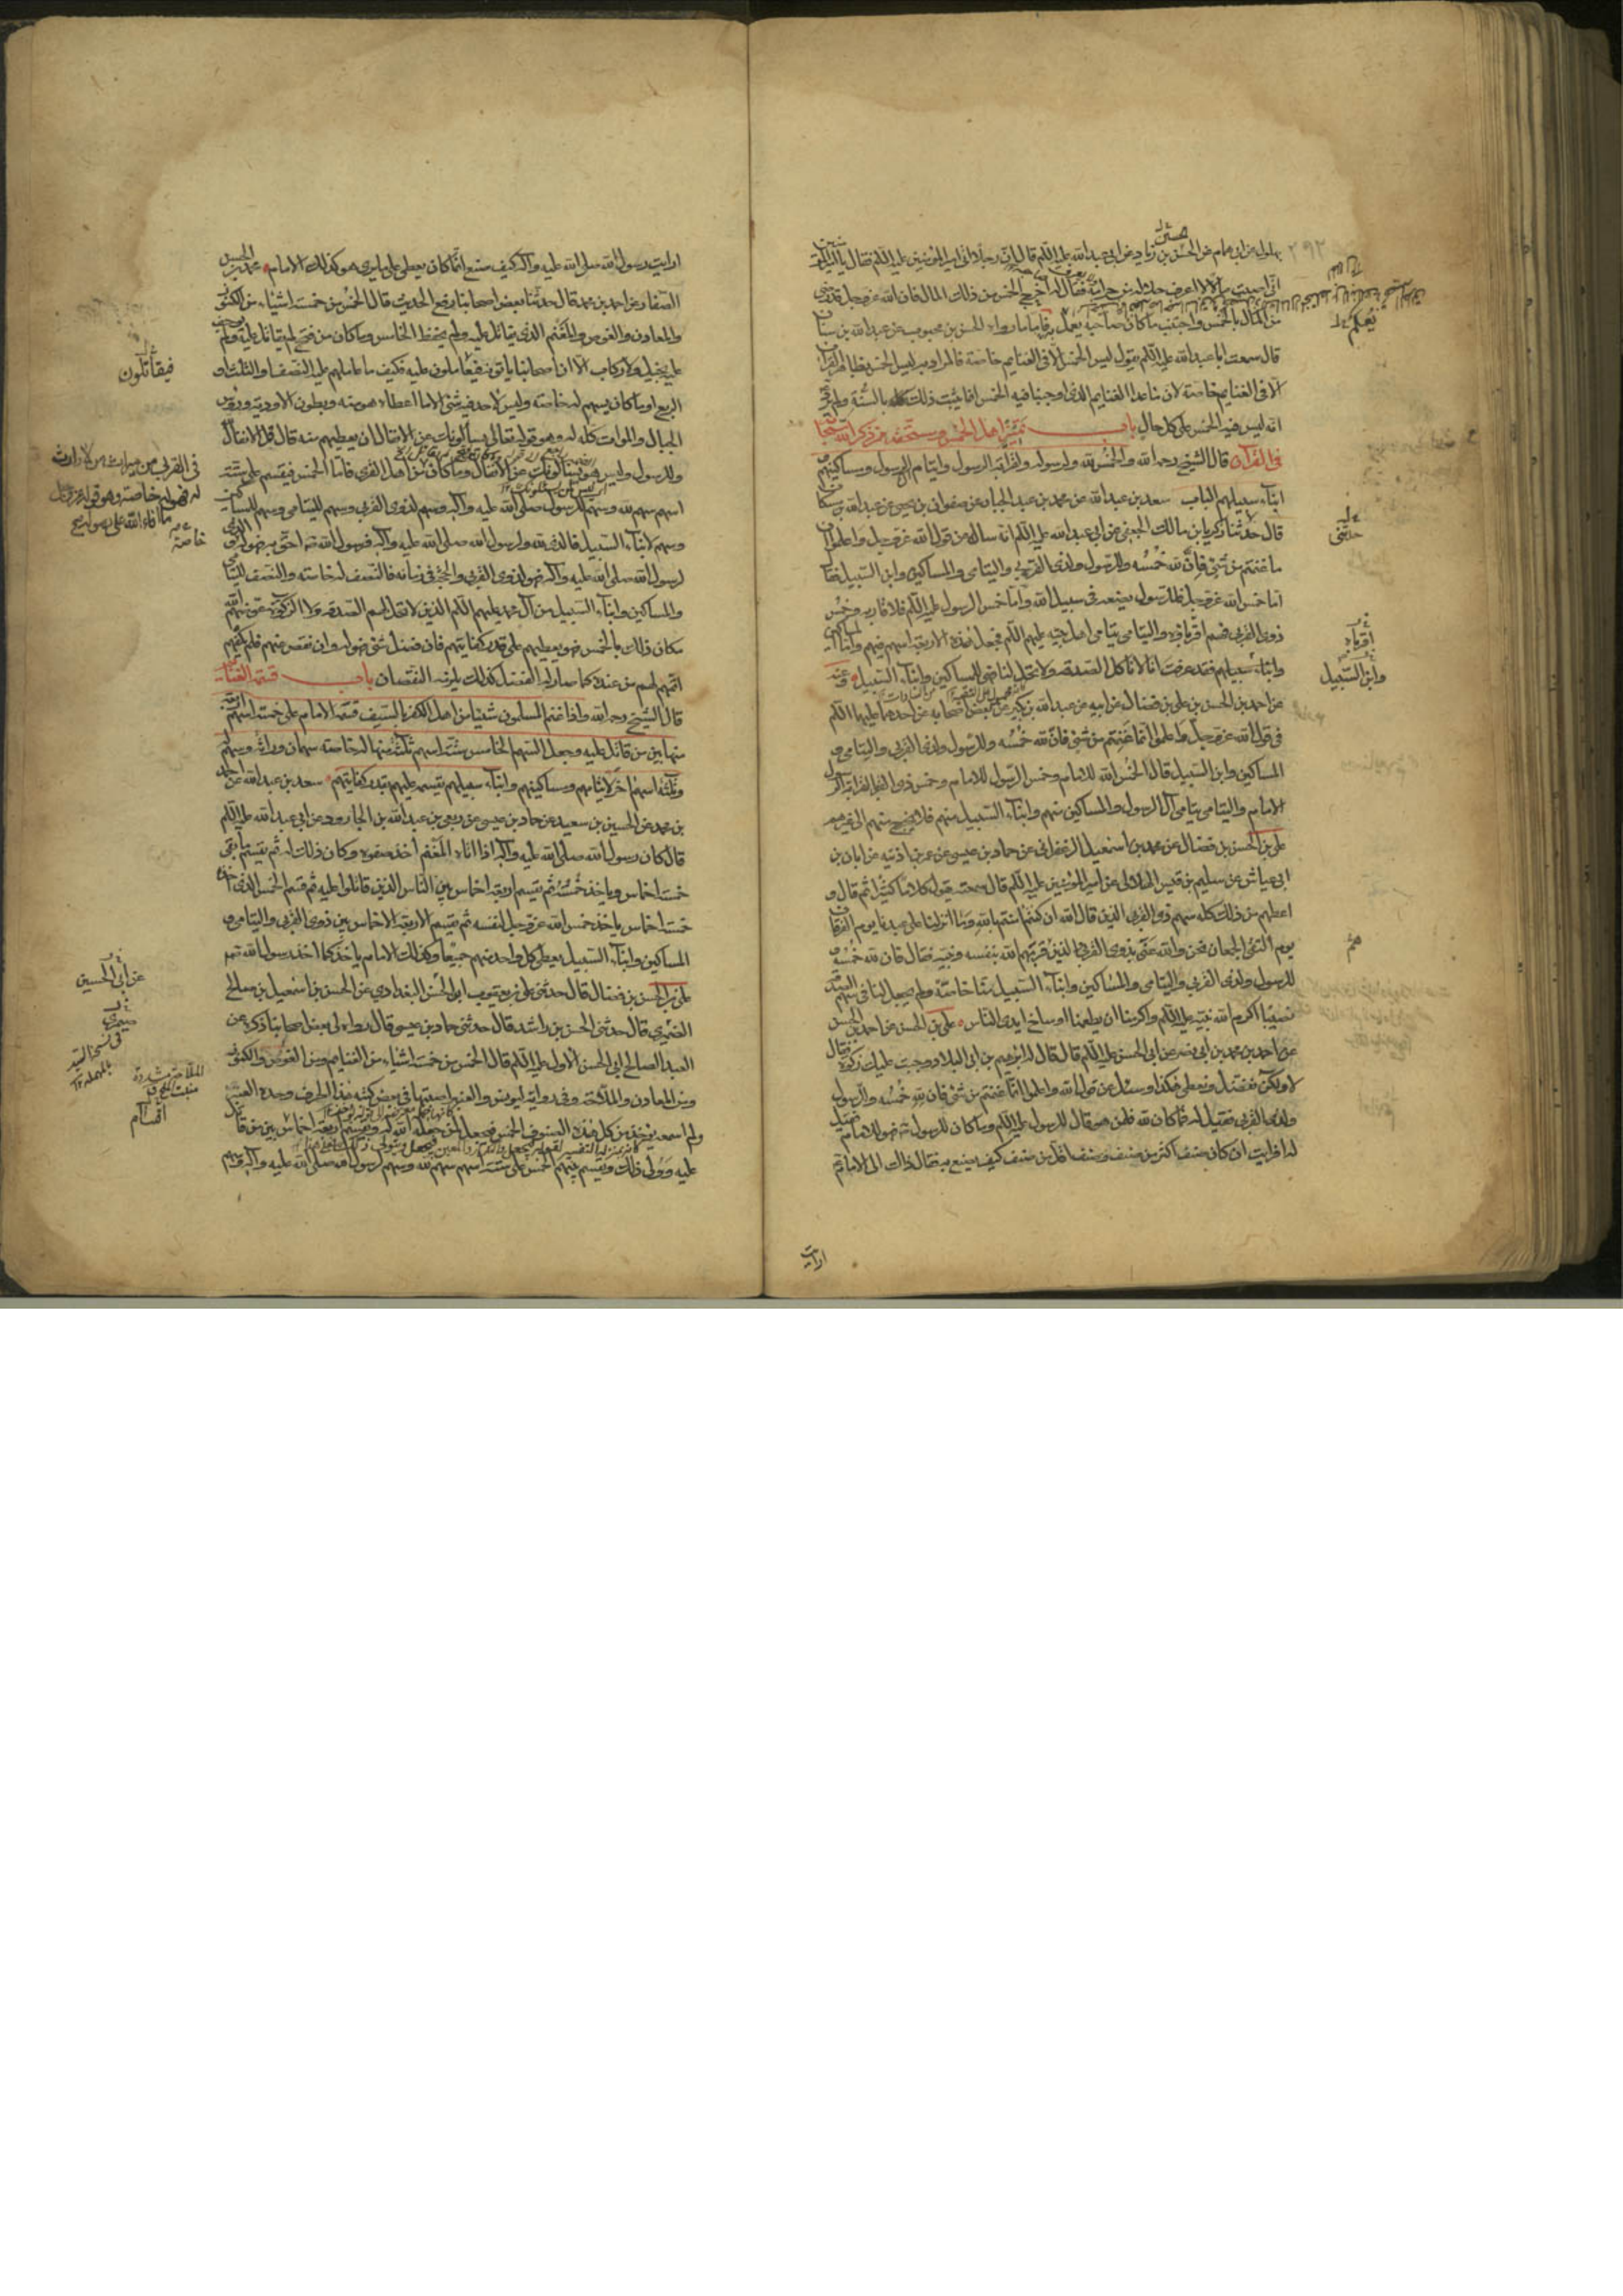 بهلول عن ابى همام عن الحسن بن زياد عن ابى عبد الله عليه اللم قال ان رجلا اتى امير المؤمنين عليه اللم فقال يا امير المؤمنين
انى اصبت مالا لا اعرف حلاله من حرامه فقال له اخرج الخمس من ذلك المال فان الله عز وجل قد رضى
من المال بالخمس واجتنب ما كان صاحبه يعلم فاما ما رواه الحسن بن محبوب عن عبد الله بن سنان
قال سمعت ابا عبد الله عليه اللم يقول ليس الخمس الا فى الغنايم خاصة فالمراد به ليس الخمس بظاهر القران
الا فى الغنايم خاصة لان ما عدا الغنايم الذى اوجبنا فيه الخمس انما يثبت ذلك كله بالسنة ولم يرد
انه ليس فيه الخمس على كل حال باب تمييز اهل الخمس ومستحقه ممن ذكر الله سبحانه
فى القرآن قال الشيخ رحمه الله والخمس لله ولرسوله ولقرابة الرسول وايتام ال الرسول ومساكينهم و
ابناء سبيلهم الباب سعد بن عبد الله عن محمد بن عبد الجبار عن صفوان بن يحيى عن عبد الله بن مسكان
قال حدثنا زكريا بن مالك الجعفى عن ابى عبد الله عليه اللم انه ساله عن قول الله عز وجل واعلموا ان
ما غنمتم من شئ فان لله خمسه وللرسول ولذى القربى واليتامى والمساكين وابن السبيل فقال
اما خمس الله عز وجل فللرسول يضعه فى سبيل الله واما خمس الرسول عليه اللم فلاقاربه وخمس
ذوى القربى فهم اقرباؤه واليتامى يتامى اهل بيته عليهم اللم فجعل هذه الاربعة اسهم فيهم واما المساكين
وابناء سبيلهم فقد عرفت انا لا ناكل الصدقة ولا تحل لنا فهى للمساكين وابناء السبيل وعنه
عن احمد بن الحسن بن على بن فضال عن ابيه عن عبد الله بن بكير عن بعض اصحابه عن احدهما عليهما اللم
فى قول الله عز وجل واعلموا انما غنمتم من شئ فان لله خمسه وللرسول ولذى القربى واليتامى و
المساكين وابن السبيل قال خمس الله للامام وخمس الرسول للامام وخمس ذوى القربى لقرابة الرسول
الامام واليتامى يتامى آل الرسول والمساكين منهم وابناء السبيل منهم فلا يخرج منهم الى غيرهم
على بن الحسن بن فضال عن محمد بن اسمعيل الزعفرانى عن حماد بن عيسى عن عمر بن اذينه عن ابان بن
ابى عياش عن سليم بن قيس الهلالى عن امير المؤمنين عليه اللم قال سمعته يقول كلاما كثيرا ثم قال و
اعطهم من ذلك كله سهم ذى القربى الذين قال الله ان كنتم امنتم بالله وما انزلنا على عبدنا يوم الفرقان
يوم التقى الجمعان نحن والله عنى بذوى القربى الذين قرنهم الله بنفسه ونبيه فقال فان لله خمسه و
للرسول ولذى القربى واليتامى والمساكين وابناء السبيل منا خاصة ولم يجعل لنا فى سهم الصدقة
نصيبا اكرم الله نبيه عليه اللم واكرمنا ان يطعمنا اوساخ ايدى الناس على بن الحسن عن احمد بن الحسن
عن احمد بن محمد بن ابى نصر عن ابى الحسن عليه اللم قال قال له ابرهيم بن ابى البلاد وجبت عليك زكوة فقال
لا ولكن نفضل ونعطى هكذا وسئل عن قول الله واعلموا انما غنمتم من شئ فان لله خمسه وللرسول
ولذى القربى فقيل له فما كان لله فلمن هو قال للرسول عليه اللم وما كان للرسول فهو للامام فقيل
له افرايت ان كان صنف اكثر من صنف وصنف اقل من صنف كيف يصنع به فقال ذاك الى الامام
ارايت
يعلم
حدثنى
اقرباء
وابن السبيل
هم
ارايت رسول الله صلى الله عليه وآله كيف صنع انما كان يعطى على ما يرى هو كذلك الامام محمد بن الحسن
الصفار عن احمد بن محمد قال حدثنا بعض اصحابنا رفع الحديث قال الخمس من خمسة اشياء من الكنوز
والمعادن والغوص والمغنم الذى يقاتل عليه ولم يحفظ الخامس وما كان من فتح لم يقاتل عليه ولم يوجف
عليه بخيل ولا ركاب الا ان اصحابنا ياتونه فيعاملون عليه فكيف ما عاملهم عليه النصف او الثلث او
الربع او ما كان يسهم له خاصة وليس لاحد فيه شئ الا ما اعطاه هو منه وبطون الاودية ورؤس
الجبال والموات كله له وهو قوله تعالى يسالونك عن الانفال ان يعطيهم منه قال قل الانفال لله
وللرسول وليس هو يسالونك عن الانفال وما كان من اهل القرى فاما الخمس فيقسم على ستة
اسهم سهم لله وسهم للرسول صلى الله عليه وآله وسهم لذوى القربى وسهم لليتامى وسهم للمساكين
وسهم لابناء السبيل فالذى لله ولرسول الله صلى الله عليه وآله فرسول الله احق به فهو له والذى
لرسول الله صلى الله عليه وآله فهو لذوى القربى والحجة فى زمانه فالنصف له خاصة والنصف لليتامى
والمساكين وابناء السبيل من آل محمد عليهم اللم الذين لا تحل لهم الصدقة ولا الزكوة عوضهم الله
مكان ذلك بالخمس فهو يعطيهم على قدر كفايتهم فان فضل شئ فهو له وان نقص عنهم فلم يكفهم
اتمه لهم من عنده كما صار له الفضل كذلك يلزمه النقصان باب قسمة الغنائم
قال الشيخ رحمه الله واذا غنم المسلمون شيئا من اهل الكفر بالسيف قسمه الامام على خمسة اسهم اربعة
منها بين من قاتل عليه وجعل السهم الخامس ستة اسهم ثلثة منها له خاصة سهمان وراثة وسهم له
وثلثة اسهم اخر لايتامهم ومساكينهم وابناء سبيلهم يقسمه عليهم بقدر كفايتهم سعد بن عبد الله عن احمد
بن محمد عن الحسين بن سعيد عن حماد بن عيسى عن ربعى بن عبد الله بن الجارود عن ابى عبد الله عليه اللم
قال كان رسول الله صلى الله عليه وآله اذا اتاه المغنم اخذ صفوه وكان ذلك له ثم يقسم ما بقى
خمسة اخماس وياخذ خمسه ثم يقسم اربعة اخماس بين الناس الذين قاتلوا عليه ثم قسم الخمس الذى اخذه
خمسة اخماس ياخذ خمس الله عز وجل لنفسه ثم يقسم الاربعة الاخماس بين ذوى القربى واليتامى و
المساكين وابناء السبيل يعطى كل واحد منهم جميعا وكذلك الامام ياخذ كما اخذ رسول الله
على بن الحسن بن فضال قال حدثنى على بن يعقوب ابى الحسن البغدادى عن الحسن بن اسمعيل بن صالح
الصيمرى قال حدثنى الحسن بن راشد قال حدثنى حماد بن عيسى قال رواه لى بعض اصحابنا ذكره عن
العبد الصالح ابى الحسن الاول عليه اللم قال الخمس من خمسة اشياء من الغنايم ومن الغوص والكنوز
ومن المعادن والملاحة وفى رواية يونس والعنبر اصبتها فى بعض كتبه هذا الحرف وحده العنبر
ولم اسمعه يؤخذ من كل هذه الصنوف الخمس فيجعل لمن جعله الله له ويقسم اربعة اخماس بين من قاتل
عليه وولى ذلك ويقسم بينهم الخمس على ستة اسهم سهم لله وسهم لرسول الله صلى الله عليه وآله وسهم
فيقاتلون
فى القربى من ميراث من لا وارث
له فهو له خاصة وهو قوله عز وجل
ما افاء الله على رسوله
خاصة
عن ابى الحسين
صيمرى
الملاحة مشددة
منبت الملح
اقسام